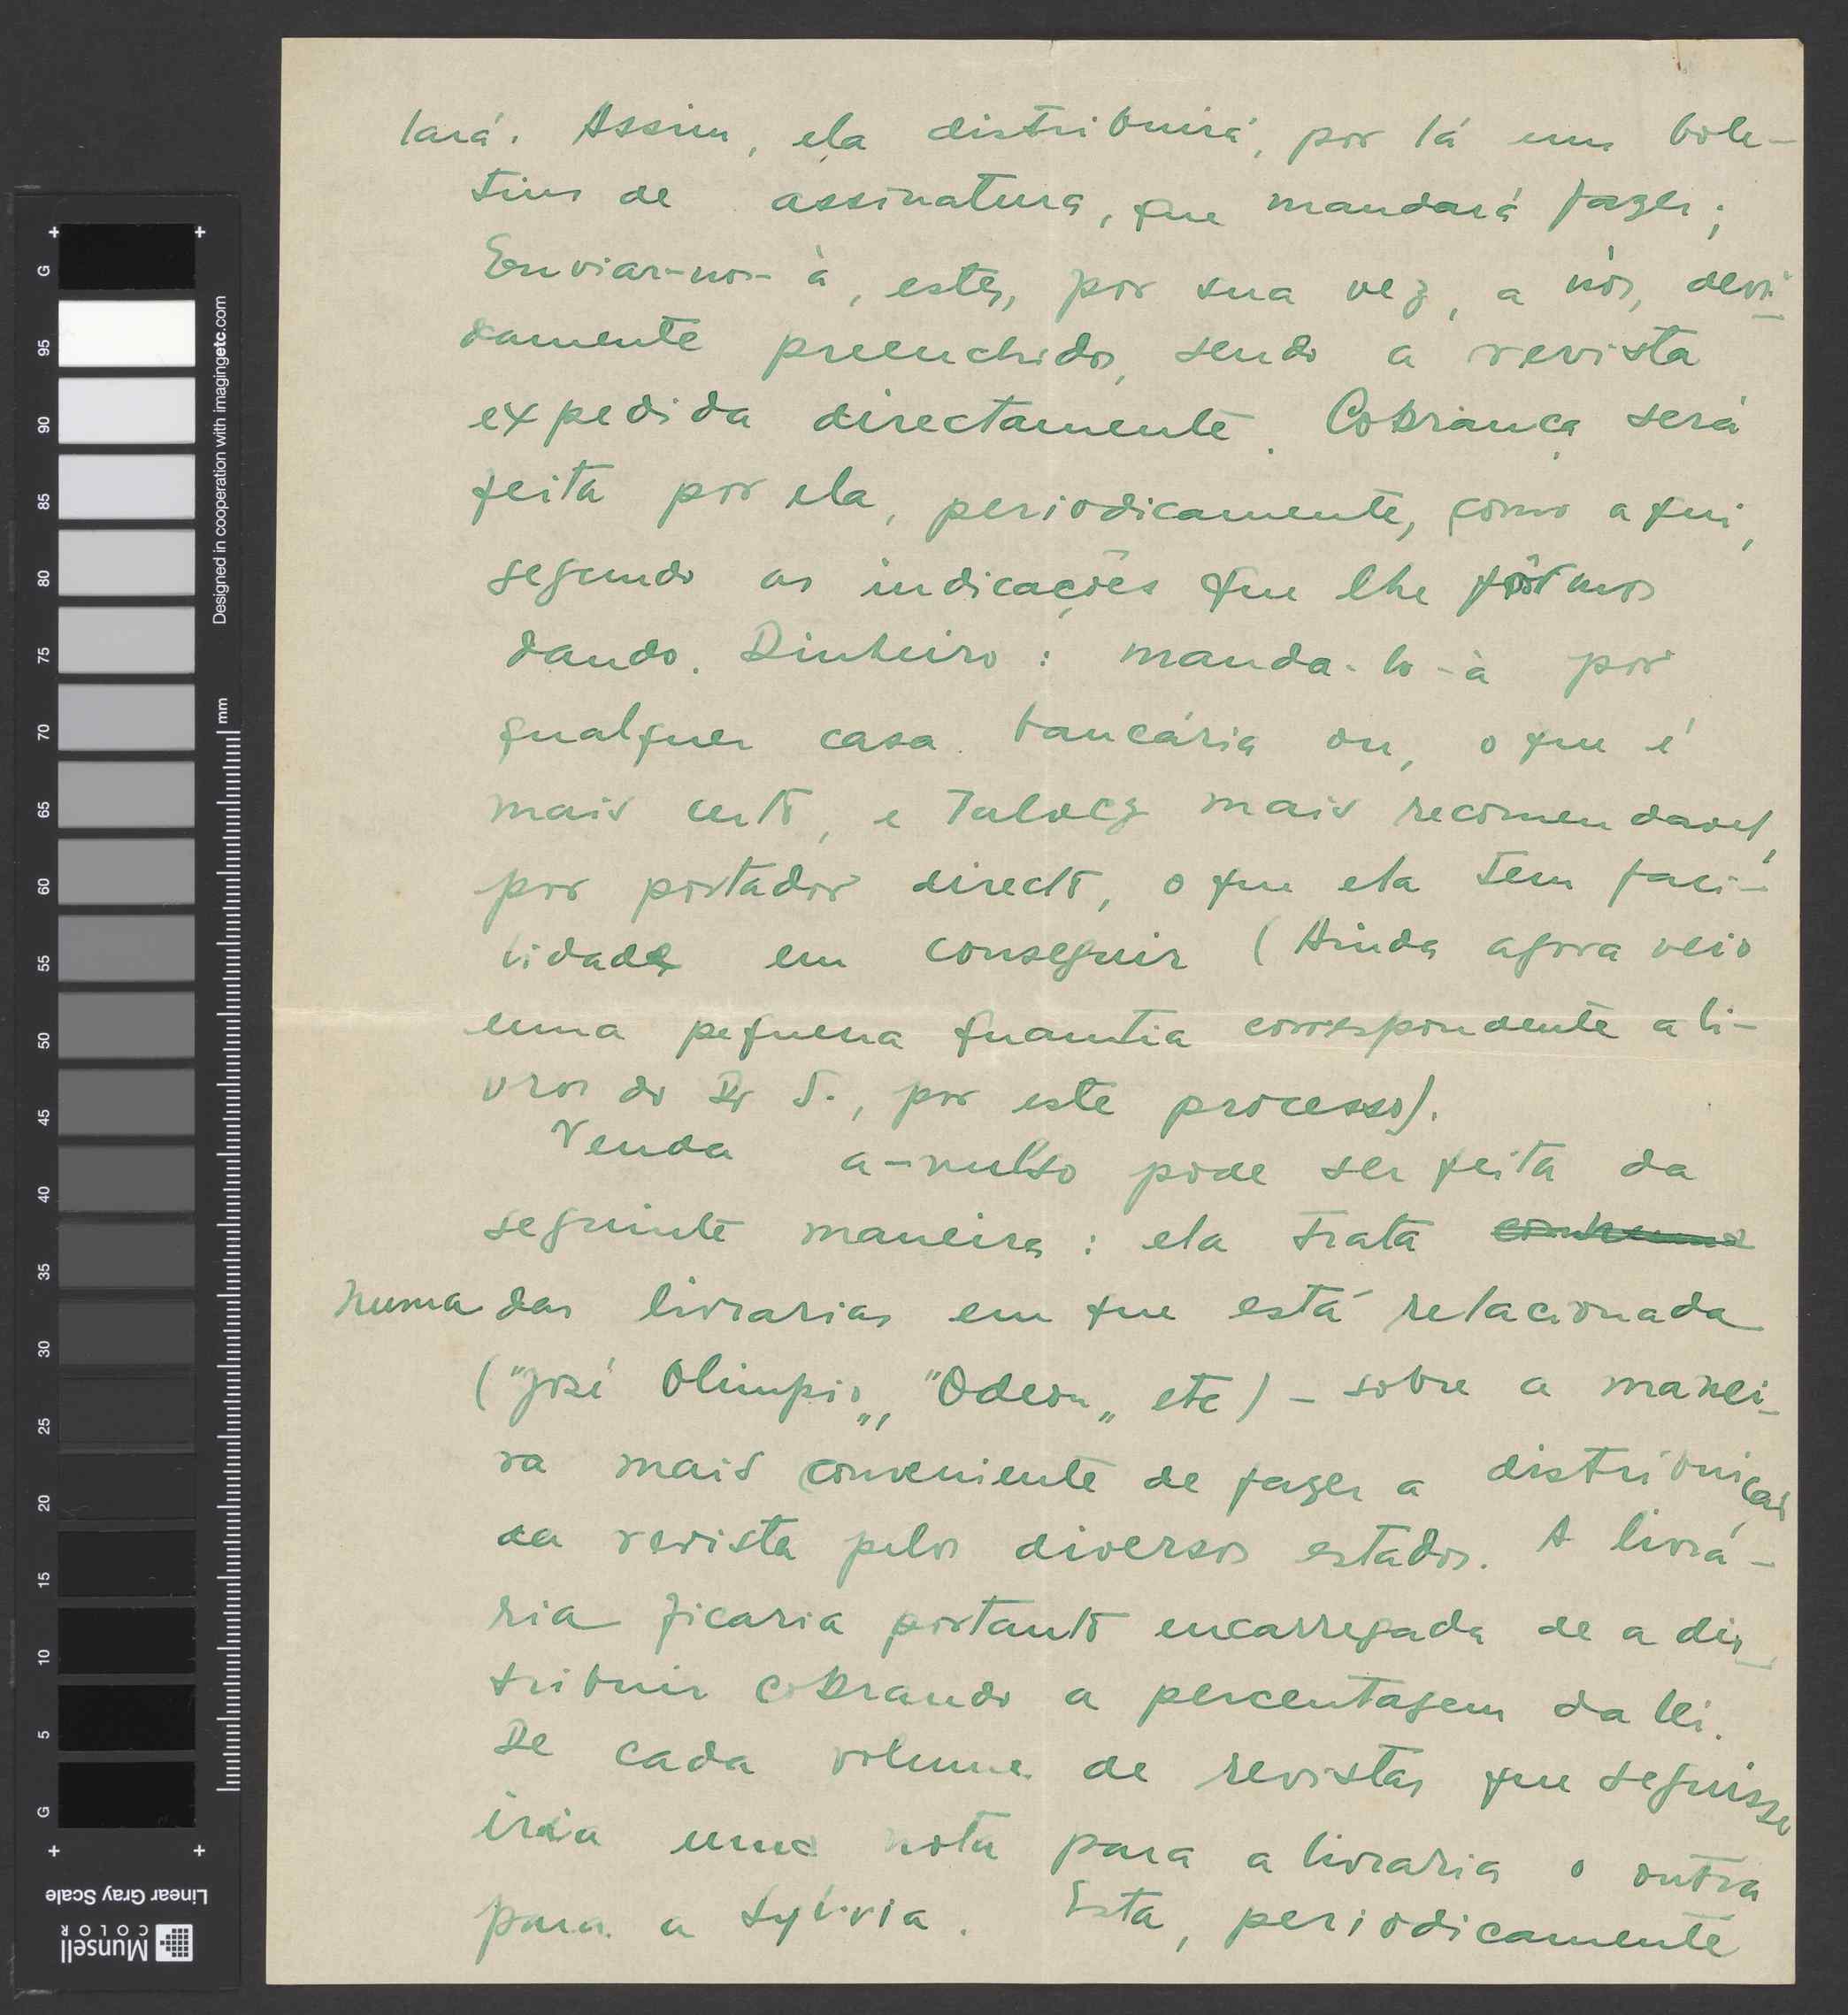 lará. Assim, ela distribuirá, por lá uns bole-
tins de assinatura, que mandará fazer;
Enviar-nos-à, estes, por sua vez, a nós, devi-
damente preenchidos, sendo a revista
expedida directamente. Cobrança será
feita por ela, periodicamente, como aqui,
segundo as indicações que lhe fôrmos
dando. Dinheiro: manda-lo-à por
qualquer casa bancária ou, o que é
mais certo, e talvez mais recomendavel,
por portador directo, o que ela tem faci-
lidade em conseguir (Ainda agora veio
uma pequena quantia correspondente a li-
vros do Dr S., por este processo).
Venda a-vulso pode ser feita da
seguinte maneira: ela trata
numa das livrarias em que está relacionada
("José Olimpio„, "Odeon„ etc) - sobre a manei-
ra mais conveniente de fazer a distribuição
da revista pelos diversos estados. A livrá-
ria ficaria portanto encarregada de a dis-
tribuir cobrando a percentagem da lei.
De cada volume de revistas que seguisse
iria uma nota para a livraria o outra
para a Sylvia. Esta, periodicamente
G 95 90 85 80 75 70 65 60 55 50 45 40 35 30 25 20 15 10 5 G
mm
Designed in cooperation with imagingetc.com
Linear Gray Scale
Munsell
COLOR